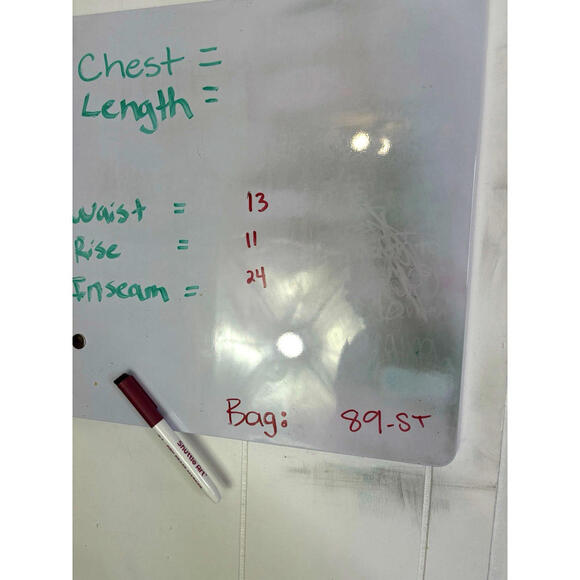 Chest =
Length =
Waist = 13
Rise = 11
Inseam = 24
Bag: 89-ST
Shuttle Art